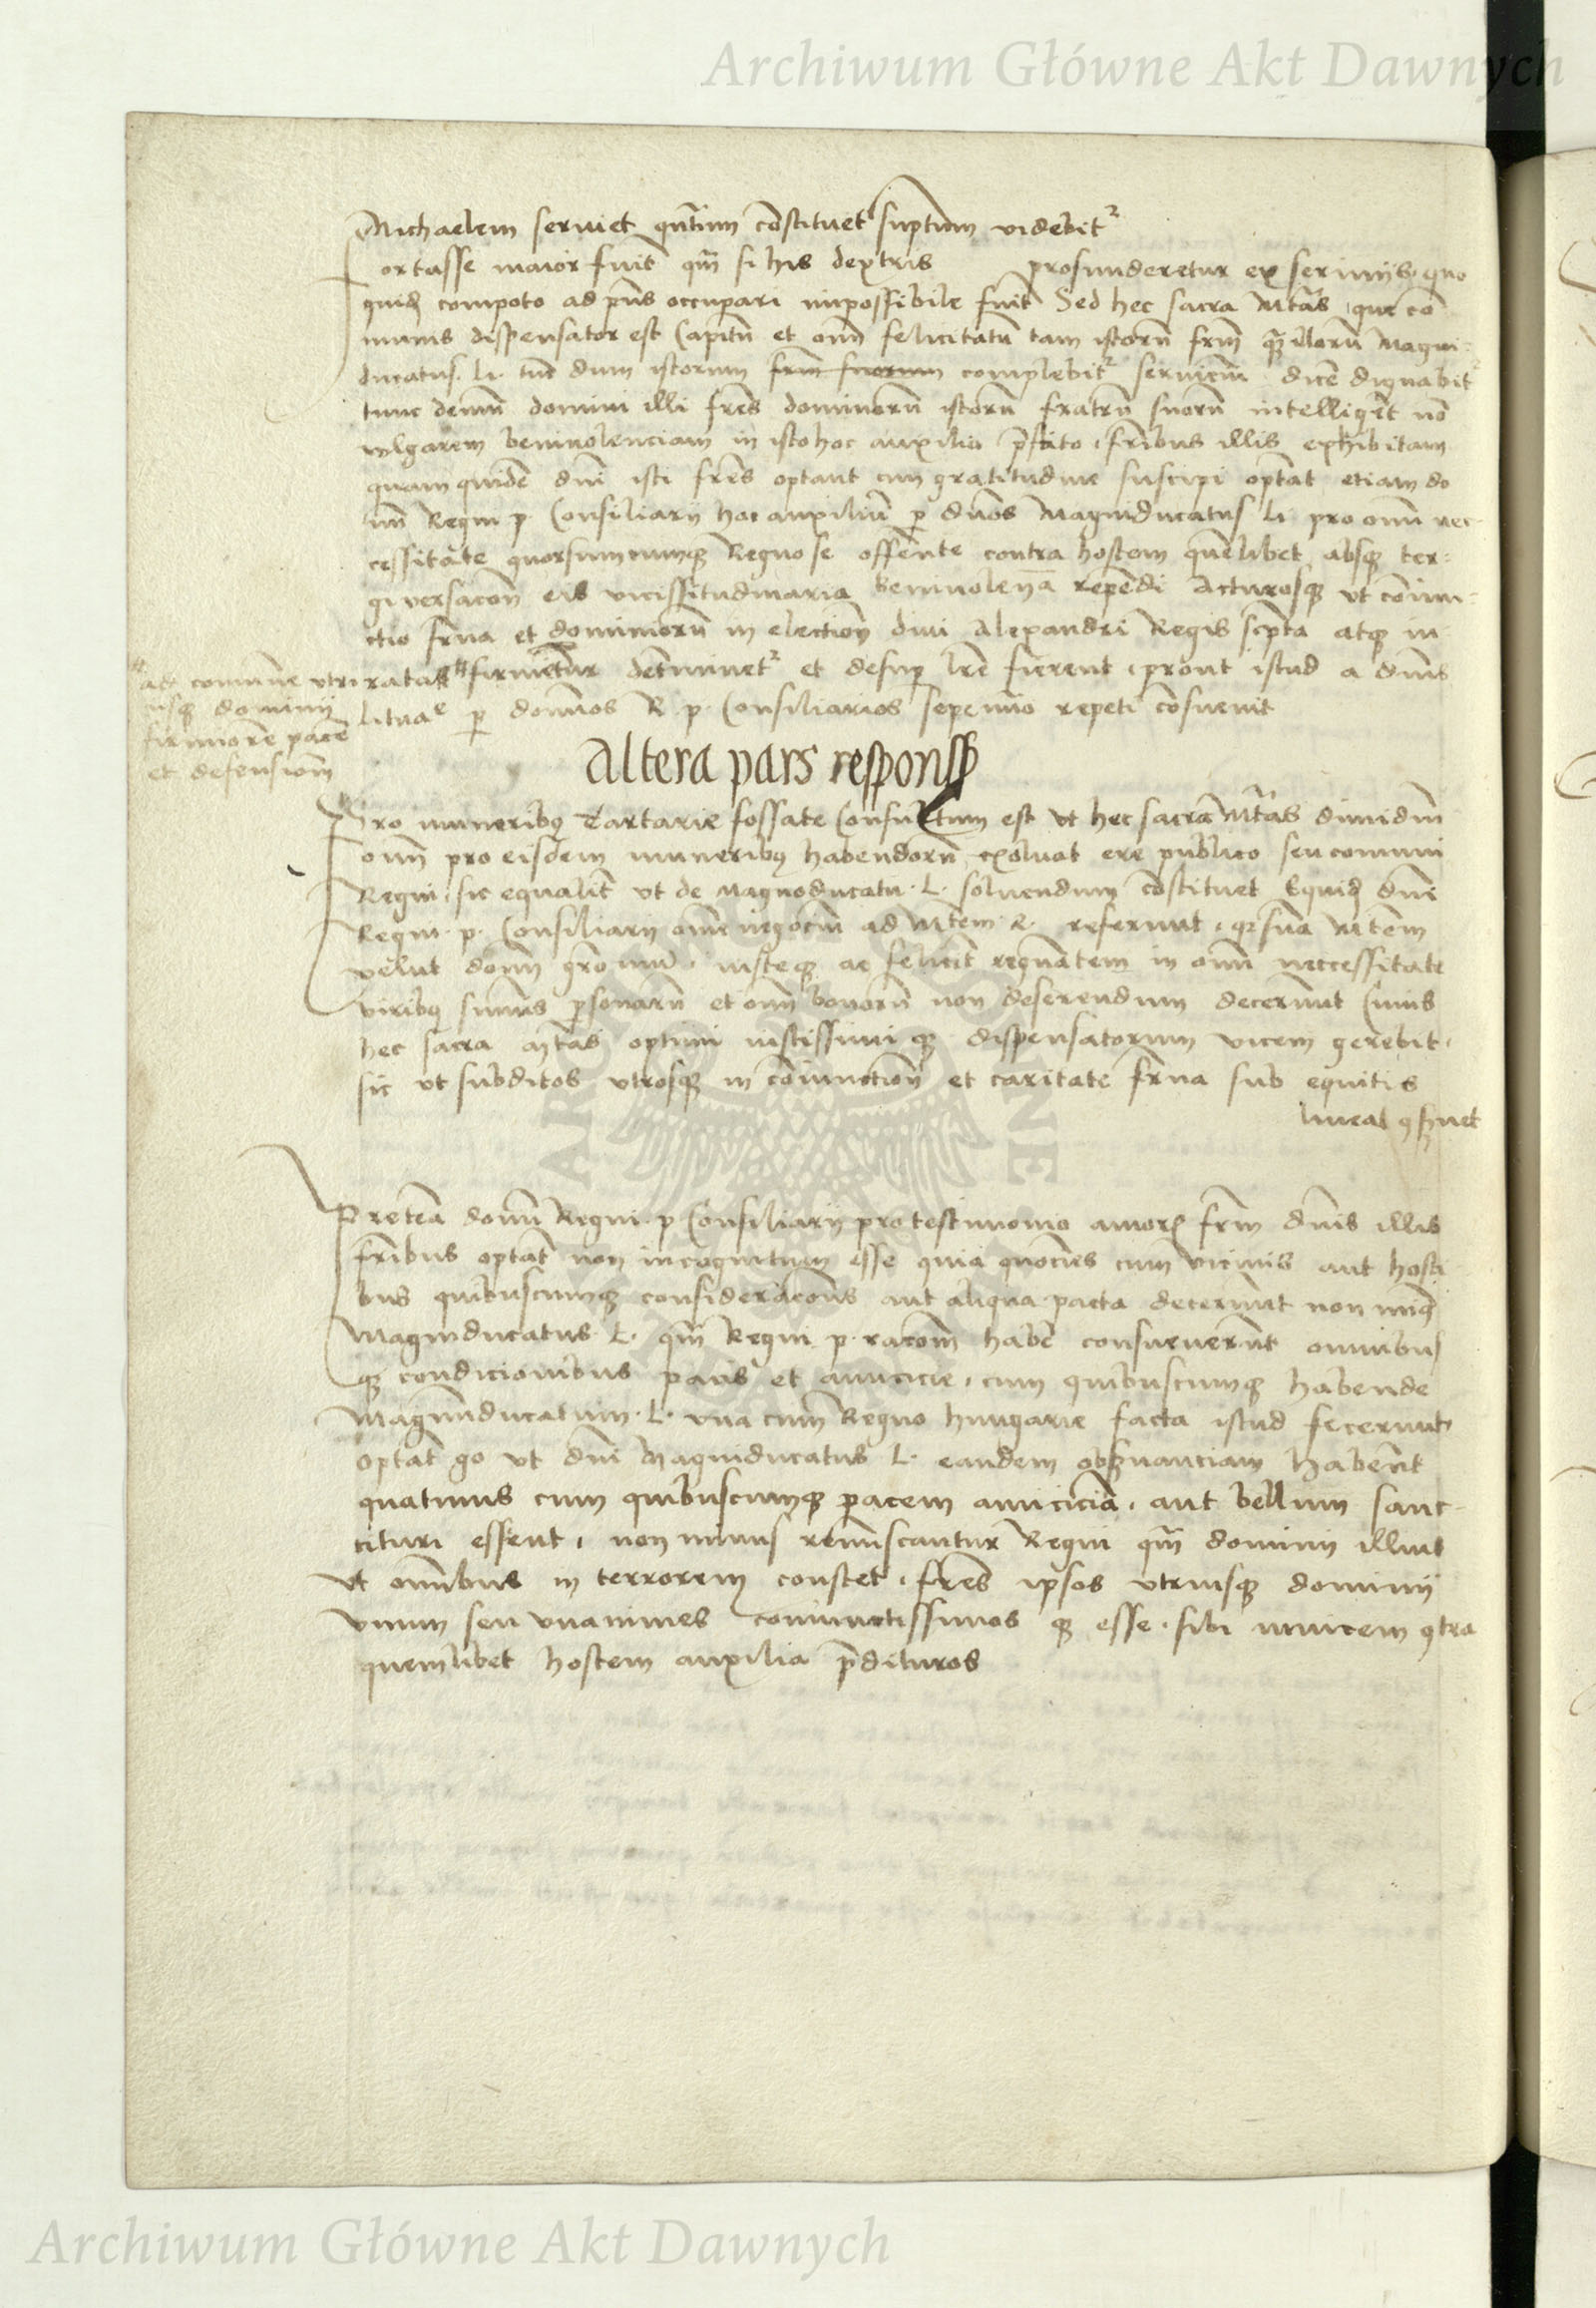 Archiwum Główne Akt Dawnych
Michaelem serviet qntum constituet suptum videbitr
Fortasse maior fuit qm si his dextris profunderetur ex scriniis quo
quid compoto ad pns occupari impossibile fuit Sed hec sacra Mtas que co
munis dispensator est Capitu et omn felicitatu tam istoru frm qz illoru Magni
ducatus Li. tuc dum istorum frm suorum complebitr servicium dice dignabitr
tunc demu domini illi fres dominoru istoru fratru suoru intelligent no
vulgarem benivolenciam in isto hoc auxilio pstito fribus illis exhibitam
quam quide dni isti fres optant cum gratitudine suscipi optat etiam do
mi Regni p. Consiliarii hoc auxiliu p dnos Magniducatus Li pro omni nec
cessitate quorsumcumqz Regno se offente contra hostem quelibet absqz ter
giversacon eis vicissitudinaria benivolencia rependi Acturosqz ut coniun
ctio frna et dominioru in election divi Alexandri Regis scpta atqz in
rata firmetur detminetr et desup lre fierent prout istud a dnis
ad comune utri
usqz dominii
firmiore pace
et defensiom
Lituae p domnos R. p. Consiliarios sepenuo repeti cosuevit
Altera pars respons
Pro muneribus Tartarie fossate Consultum est ut hec sacra Mtas dimidiu
omn pro eisdem muneribus habendoru exolvat ere publico seu comuni
Regni sic equalit ut de Magnoducatu L. solvendum costituet Equid dni
Regni p. Consiliarii omne negociu ad Mtem R. referunt qz sua Mtem
velut domn grosum iusteqz ac felicit regnatem in omn neccessitate
viribus sumis psonaru et omn bonoru non deserendum decernut Cuius
hec sacra Mtas optimi iustissimi qz dispensatorum vicem gerebit
sic ut subditos utrosqz in coniunction et caritate frna sub equitis
Preterea domi Regni p Consiliarii pro testimonio amoris frm dnis illis
fribus optat non incognitum esse quia quocies cum vicinis aut hosti
bus quibuscumqz consideracons aut aliqua pacta decernut non minus
Magniducatus L. qm Regni p. racom habe consueverut omnibus
qz condicionibus pacis et amicicie cum quibuscumqz habende
Magnuducatum L. una cum Regno Hungarie facta istud fecerunt
optat go ut dni Magniducatus L. eandem obsvanciam habent
quatinus cum quibuscumqz pacem amicicia aut bellum sanc
cituri essent non minus reminiscantur Regni qm dominii illius
ut omibus in terrorem constet fres ipsos utriusqz dominii
unum seu unanimes coniunctissimos qz esse sibi invicem contra
quemlibet hostem auxilia pdituros
Archiwum Główne Akt Dawnych